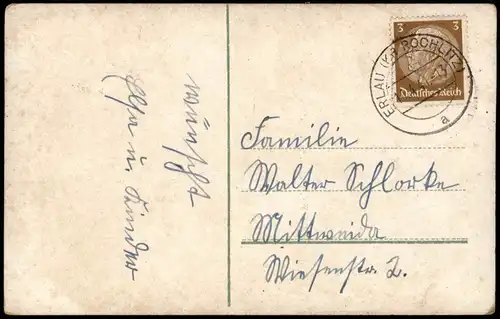 wünscht
Elsa u. Kinder
3 3
Deutsches Reich
ERLAU (KR ROCHLITZ)
a
Familie
Walter Schlorke
Mittweida
Wiesenstr. 2.